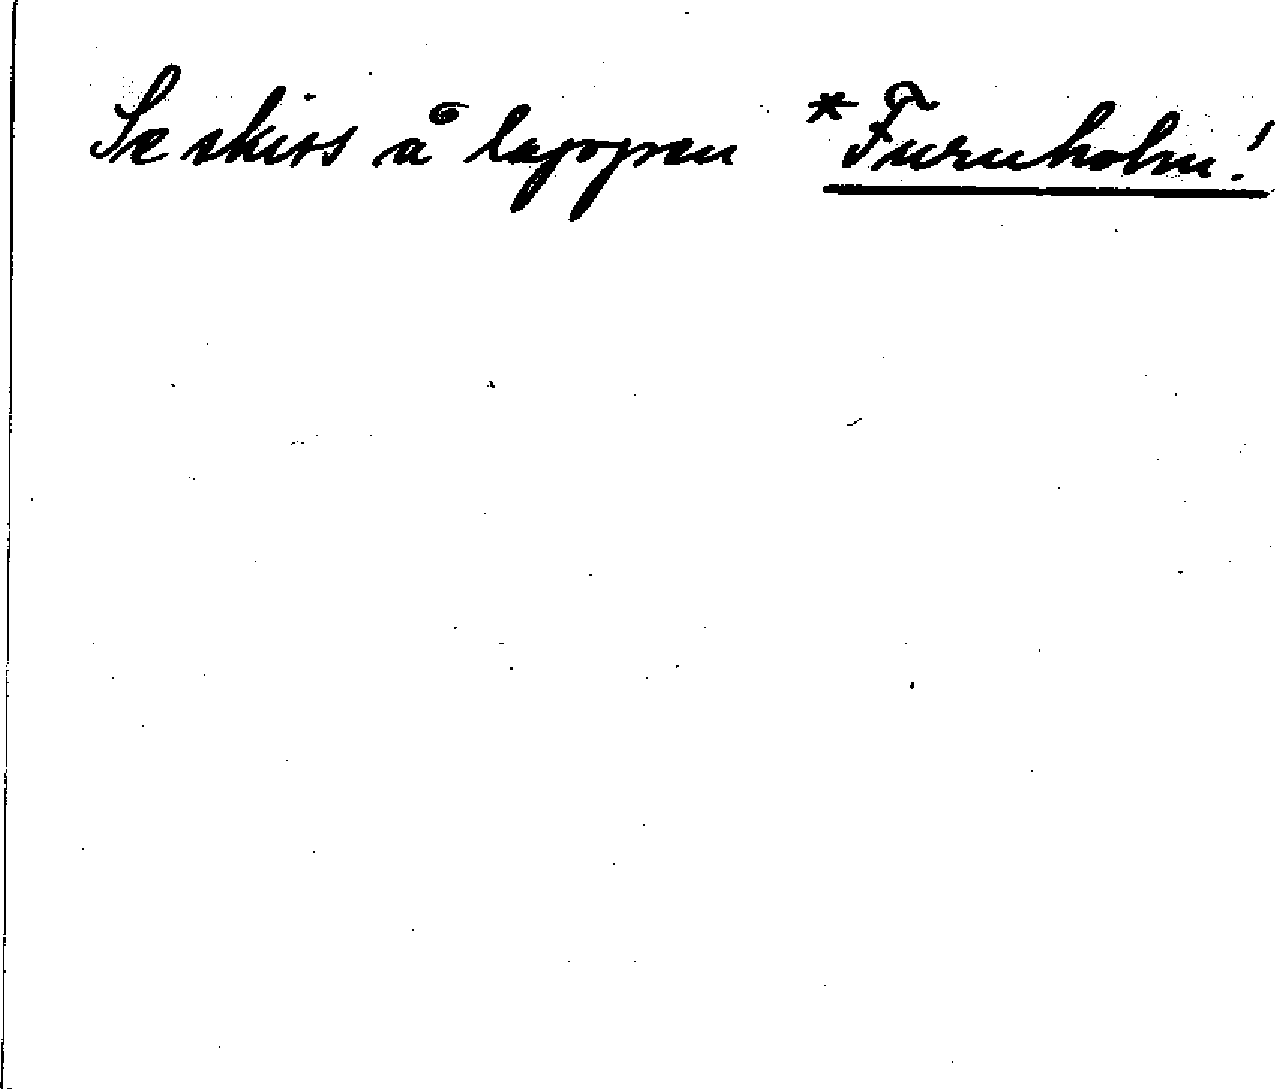 Se skiss å lappen *Furuholm!